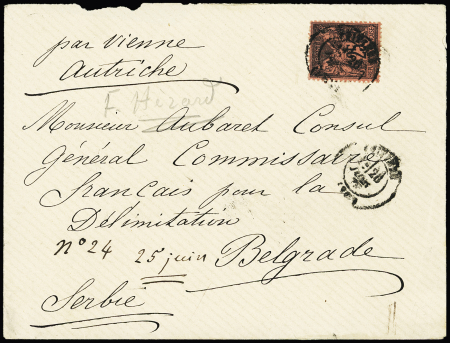 par Vienne
Autriche
Monsieur Aubaret Consul
Général Commissaire
français pour la
Délimitation
n° 24 25 juin Belgrade
Serbie